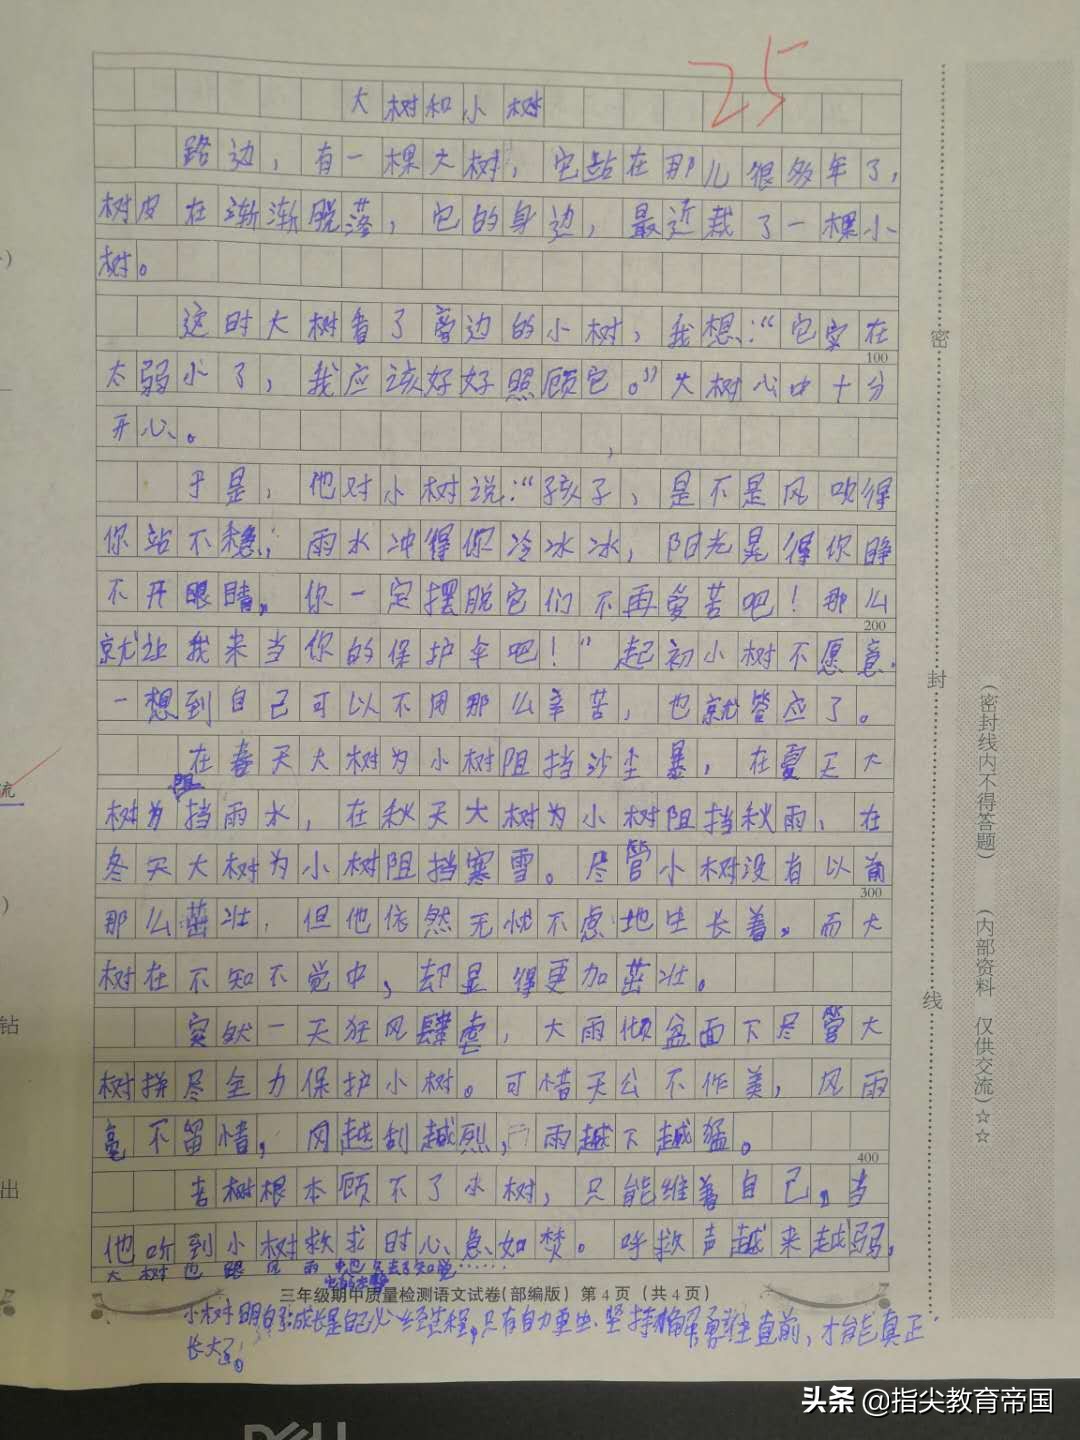 25
大树和小树
路边，有一棵大树，它站在那儿很多年了，
树皮在渐渐脱落，它的身边，最近栽了一棵小
树。
这时大树看了旁边的小树，我想：“它实在
100
太弱小了，我应该好好照顾它。”大树心中十分
开心。
于是，他对小树说：“孩子，是不是风吹得
你站不稳；雨水冲得你冷冰冰，阳光晃得你睁
不开眼睛，你一定摆脱它们不再受苦吧！那么
200
就让我来当你的保护伞吧！”起初小树不愿意，
一想到自己可以不用那么辛苦，也就答应了。
在春天大树为小树阻挡沙尘暴，在夏天大
树为阻挡雨水，在秋天大树为小树阻挡秋雨，在
冬天大树为小树阻挡寒雪。尽管小树没有以前
300
那么茁壮，但他依然无忧不虑地生长着。而大
树在不知不觉中，却显得更加茁壮。
突然一天狂风肆虐，大雨倾盆面下尽管大
树拼尽全力保护小树。可惜天公不作美，风雨
毫不留情，风越刮越烈，雨越下越猛。
400
老树根本顾不了小树，只能维着自己。当
他听到小树救求时心急如焚。呼救声越来越弱，
大树也跟风雨中也失去了知觉……
三年级期中质量检测语文试卷(部编版) 第4页 (共4页)
小树明白了：成长是自己必经过程，只有自力更生、坚持勇往直前，才能真正
长大了。
密
封
线
(密封线内不得答题)
(内部资料 仅供交流)☆☆
流
钻
出
头条 @指尖教育帝国